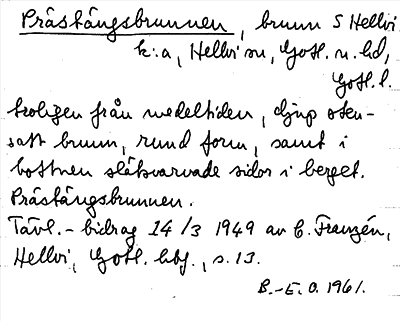 Prästängsbrunnen, brunn S Hellvi
k:a, Hellvi sn, Gotl. n. hd,
Gotl. l.
troligen från medeltiden, djup sten-
satt brunn, rund form, samt i
bottnen slätsvarvade sidor i berget.
Prästängsbrunnen.
Tävl.-bidrag 14/3 1949 av C. Franzén,
Hellvi, Gotl. hbg., s. 13.
B.-E. O. 1961.